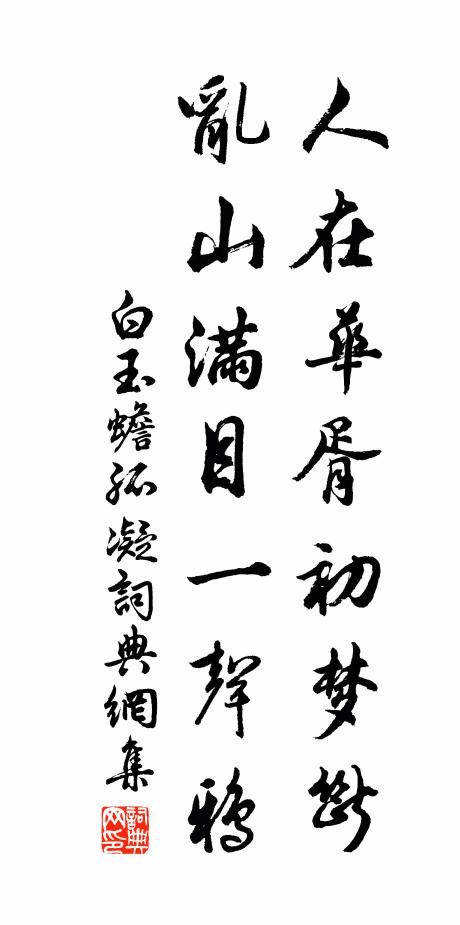 人在華胥初梦斷
亂山滿目一聲鴉
白玉蟾孤凝詞典網集
詞典
网印